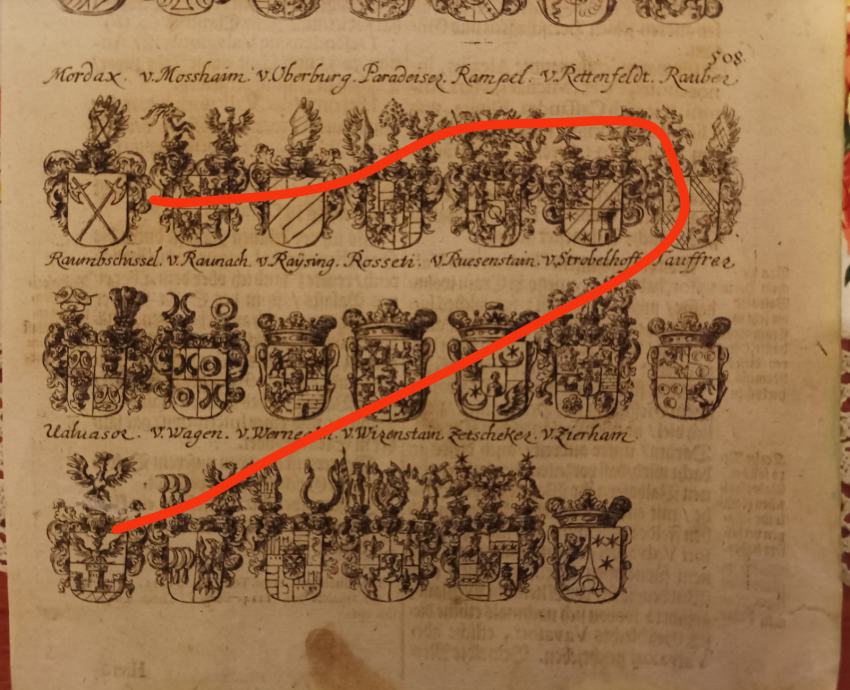 508.
Mordax. v. Mosshaim. v. Oberburg. Paradeiser. Rampel. v. Rettenfeldt. Rauber
Raumbschissel. v. Raunach v. Raÿsing. Rosseti. v. Ruesenstain. v. Strobelhoff. Tauffrer
Ualuasor. v. Wagen. v. v. Wizenstain. Zetscheker. v. Zierham